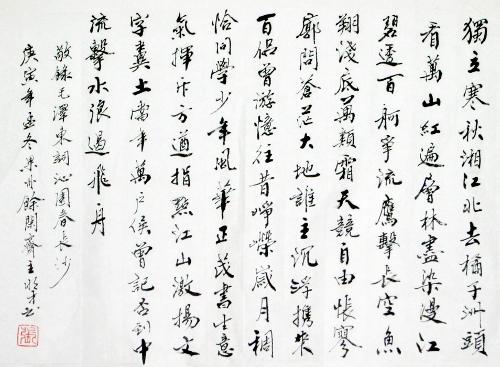 獨立寒秋湘江北去橘子洲頭
看萬山紅遍層林盡染漫江
碧透百舸爭流鷹擊長空魚
翔淺底萬類霜天競自由悵寥
廓問蒼茫大地誰主沉浮攜來
百侶曾游憶往昔崢嶸歲月稠
恰同學少年風華正茂書生意
氣揮斥方遒指點江山激揚文
字糞土當年萬戶侯曾記否到中
流擊水浪遏飛舟
敬錄毛澤東詞沁園春長沙
庚寅年孟冬餘閑齋主書